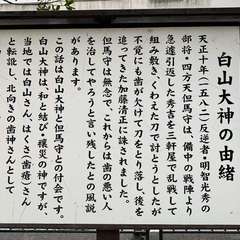 白山大神の由緒
天正十年（一五八二）反逆者・明智光秀の
部将・四方天但馬守は、備中の戦陣より
急遽引返した秀吉を三軒屋で乱戦して
組み敷き、くわえた刀で討とうとしたが
不覚にも歯が欠けて刀をとり落し、後を
追ってきた加藤清正に誅されました。
但馬守は無念で、これからは歯の悪い人
を治してやろうと言い残したとの風説
があります。
この話は白山大神と但馬守との付会です。
白山大神は和と結び・禳災の神ですが、
当地では白山さん、はくさ（歯瘡）さん
と転訛し、北向きの歯神さんとして